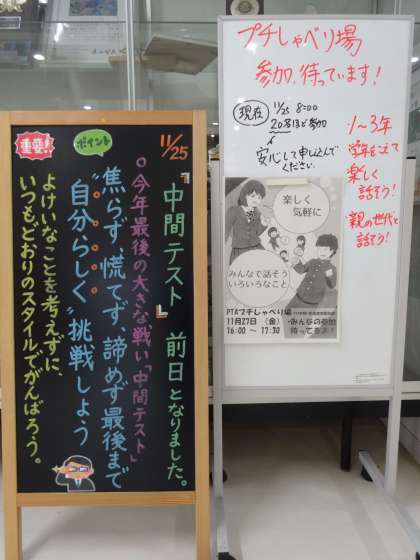 重要!
ポイント
11/25
『中間テスト』前日となりました。
○今年最後の大きな戦い「中間テスト」
焦らず、慌てず、諦めず最後まで
"自分らしく"挑戦しよう
よけいなことを考えずに、
いつもどおりのスタイルでがんばろう。
プチしゃべり場
参加、待っています!
現在
11/25 8:00
20名ほど参加
安心して申し込んで
ください。
1〜3年
学年をこえて
楽しく
話そう!
親の世代と
話そう!
楽しく
気軽に
みんなで話そう
いろいろなこと
PTAプチしゃべり場
11月27日（金）
16:00 〜 17:30
みんなの参加
待ってます!